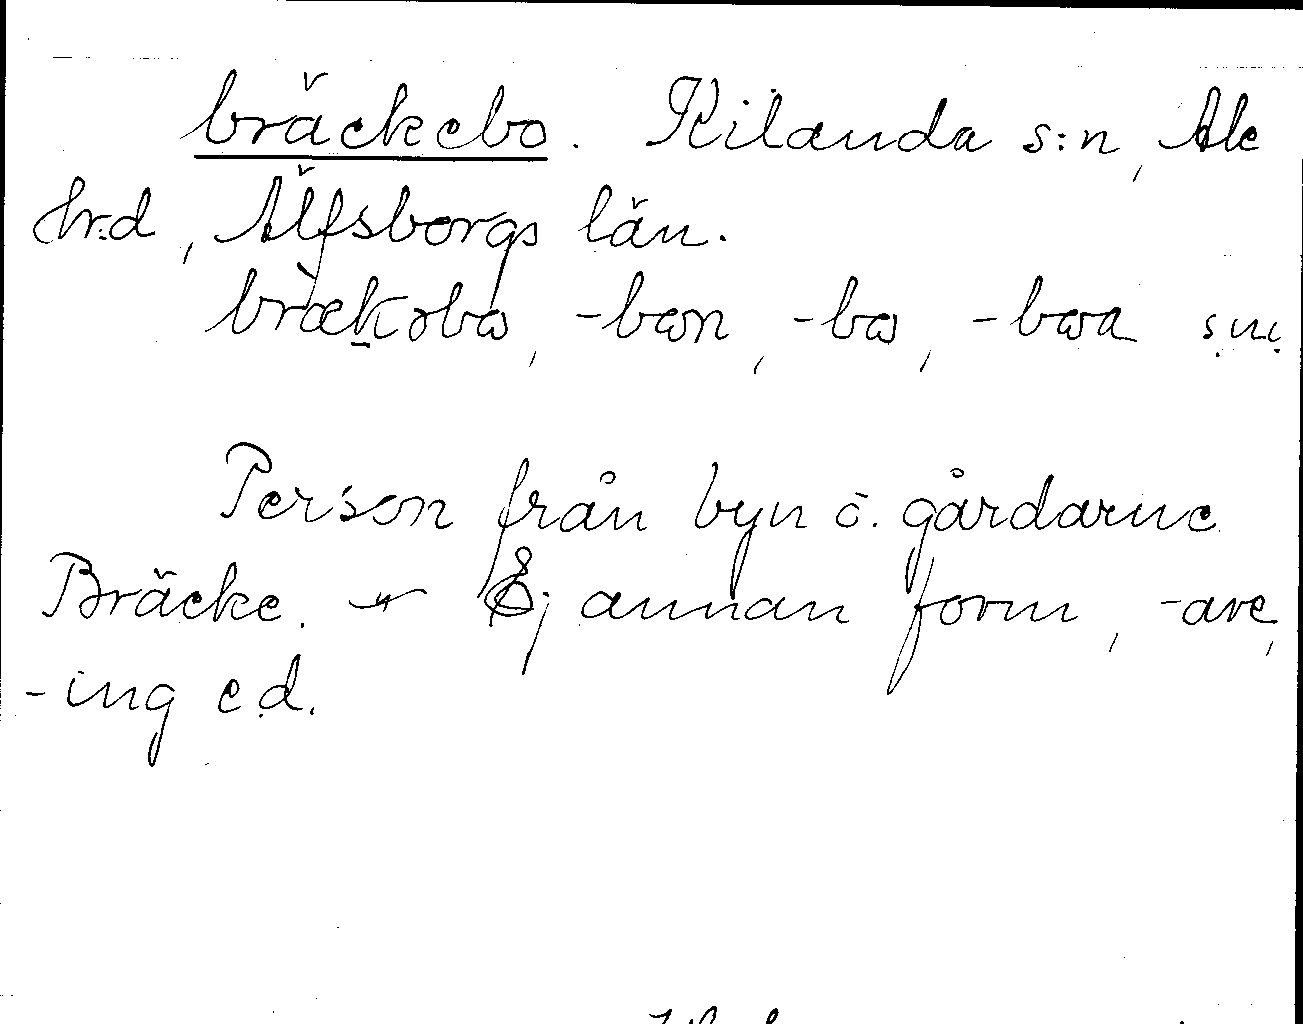 bräckebo. Kilanda s:n, Ale
hrd, Älfsborgs län.
bræ̀kəbω, -bωn, -bω, -bωa s.m.
Person från byn o. gårdarne
Bräcke. — Ej annan form, -are,
-ing e.d.